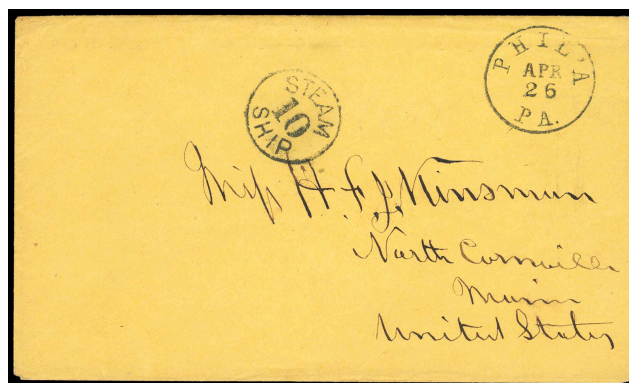 PHIL'A
APR
26
PA.
STEAM
10
SHIP
Miss H. F. J. Kinsman
North Cornville
Maine
United States